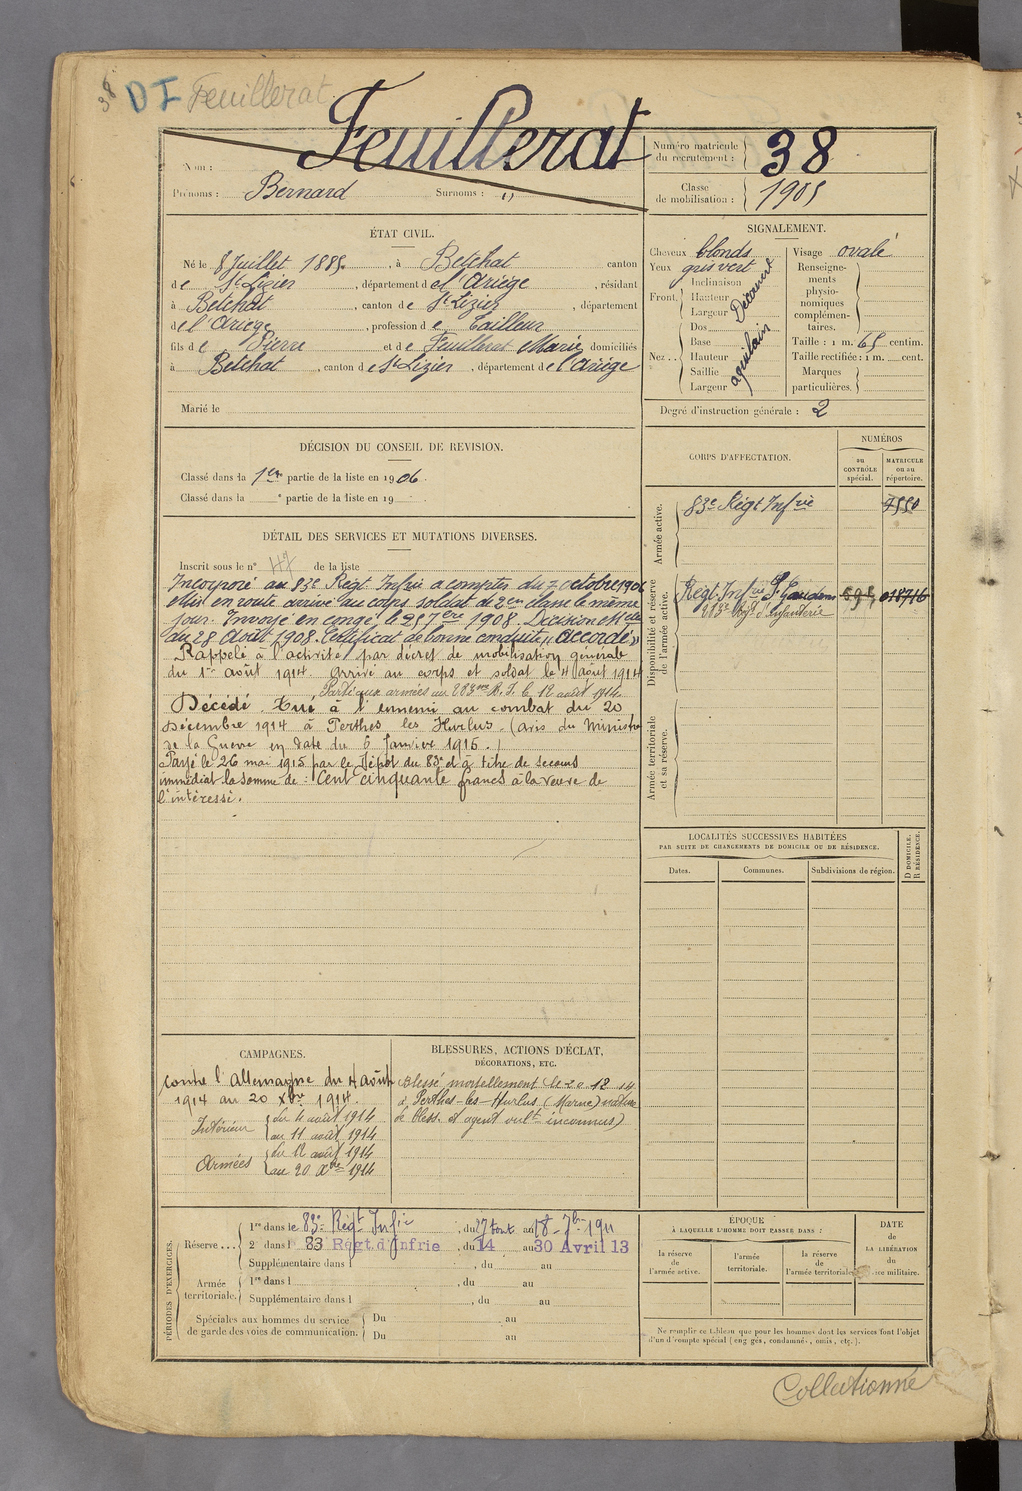 38 DI Feuillerat
Feuillerat
Nom :
Prénoms : Bernard Surnoms : "
Numéro matricule du recrutement : 38
Classe de mobilisation : 1905
ÉTAT CIVIL.
Né le 8 Juillet 1885, à Betchat canton
de St Lizier, département de l'Ariège, résidant
à Betchat, canton de St Lizier, département
de l'Ariège, profession de Tailleur
fils de Pierre et de Feuillerat Marie domiciliés
à Betchat, canton de St Lizier, département de l'Ariège
Marié le
SIGNALEMENT.
Cheveux blonds
Yeux gris vert
Front. Inclinaison
Hauteur Découvert
Largeur
Nez.. Dos
Base aquilain
Hauteur
Saillie
Largeur
Visage ovale
Renseigne-
ments
physio-
nomiques
complémen-
taires.
Taille : 1 m. 65 centim.
Taille rectifiée : 1 m. cent.
Marques
particulières.
Degré d'instruction générale : 2
DÉCISION DU CONSEIL DE REVISION.
Classé dans la 1ère partie de la liste en 1906.
Classé dans la e partie de la liste en 19
DÉTAIL DES SERVICES ET MUTATIONS DIVERSES.
Inscrit sous le n° 47 de la liste
Incorporé au 83e Régt Infrie à compter du 7 octobre 1906
Mis en route arrivé au corps soldat de 2e classe le même
jour. Envoyé en congé, le 25 7bre 1908. Décision Mlle
du 28 Août 1908. Certificat de bonne conduite "accordé"
Rappelé à l'activité par décret de mobilisation générale
du 1er août 1914. Arrivé au corps et soldat le 4 Août 1914
Parti aux armées au 283me R. I. le 12 août 1914.
Décédé. Tué à l'ennemi au combat du 20
Décembre 1914 à Perthes les Hurlus. (avis du Ministre
de la Guerre en date du 6 Janvier 1915.)
Payé le 26 mai 1915 par le Dépôt du 83e d à titre de secours
immédiat la somme de : Cent cinquante francs à la veuve de
l'intéressé.
CORPS D'AFFECTATION.
NUMÉROS
au CONTRÔLE spécial.
MATRICULE ou au répertoire.
Armée active.
83e Régt Infrie 7550
Disponibilité et réserve de l'armée active.
Régt Infrie St Gaudens 595 018716
283e Régt d'Infanterie
Armée territoriale et sa réserve.
LOCALITÉS SUCCESSIVES HABITÉES
PAR SUITE DE CHANGEMENTS DE DOMICILE OU DE RÉSIDENCE.
Dates. Communes. Subdivisions de région.
D DOMICILE. R RÉSIDENCE.
CAMPAGNES.
Contre l'Allemagne du 4 août
1914 au 20 Xbre 1914.
Intérieur du 4 août 1914
au 11 août 1914
Armées du 12 août 1914
au 20 Xbre 1914
BLESSURES, ACTIONS D'ÉCLAT,
DÉCORATIONS, ETC.
Blessé mortellement le 20.12.14
à Perthes-les-Hurlus (Marne) nature
de bless. et agent vult inconnus)
PÉRIODES D'EXERCICES.
Réserve... 1re dans le 83e Régt Infie, du 27 Aout au 18 7bre 1911
2e dans l 83 Régt. d'Infrie, du 14 au 30 Avril 13
Supplémentaire dans l , du au
Armée territoriale. 1re dans l , du au
Supplémentaire dans l , du au
Spéciales aux hommes du service
de garde des voies de communication. Du au
Du au
ÉPOQUE
À LAQUELLE L'HOMME DOIT PASSER DANS :
la réserve de l'armée active.
l'armée territoriale.
la réserve de l'armée territoriale
DATE
de
LA LIBÉRATION
du
service militaire.
Ne remplir ce tableau que pour les hommes dont les services font l'objet
d'un décompte spécial (engagés, condamnés, omis, etc.).
Collationné